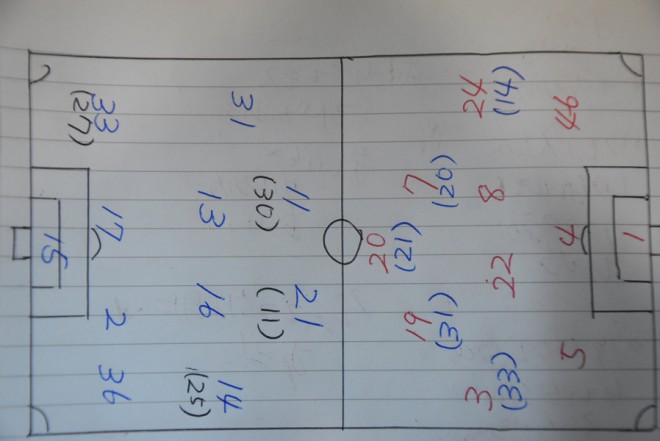 33
(27)
17
15
2
36
31
13
16
14
(25)
11
(30)
21
(11)
20
(21)
7
(20)
19
(31)
24
(14)
8
22
3
(33)
46
4
5
1